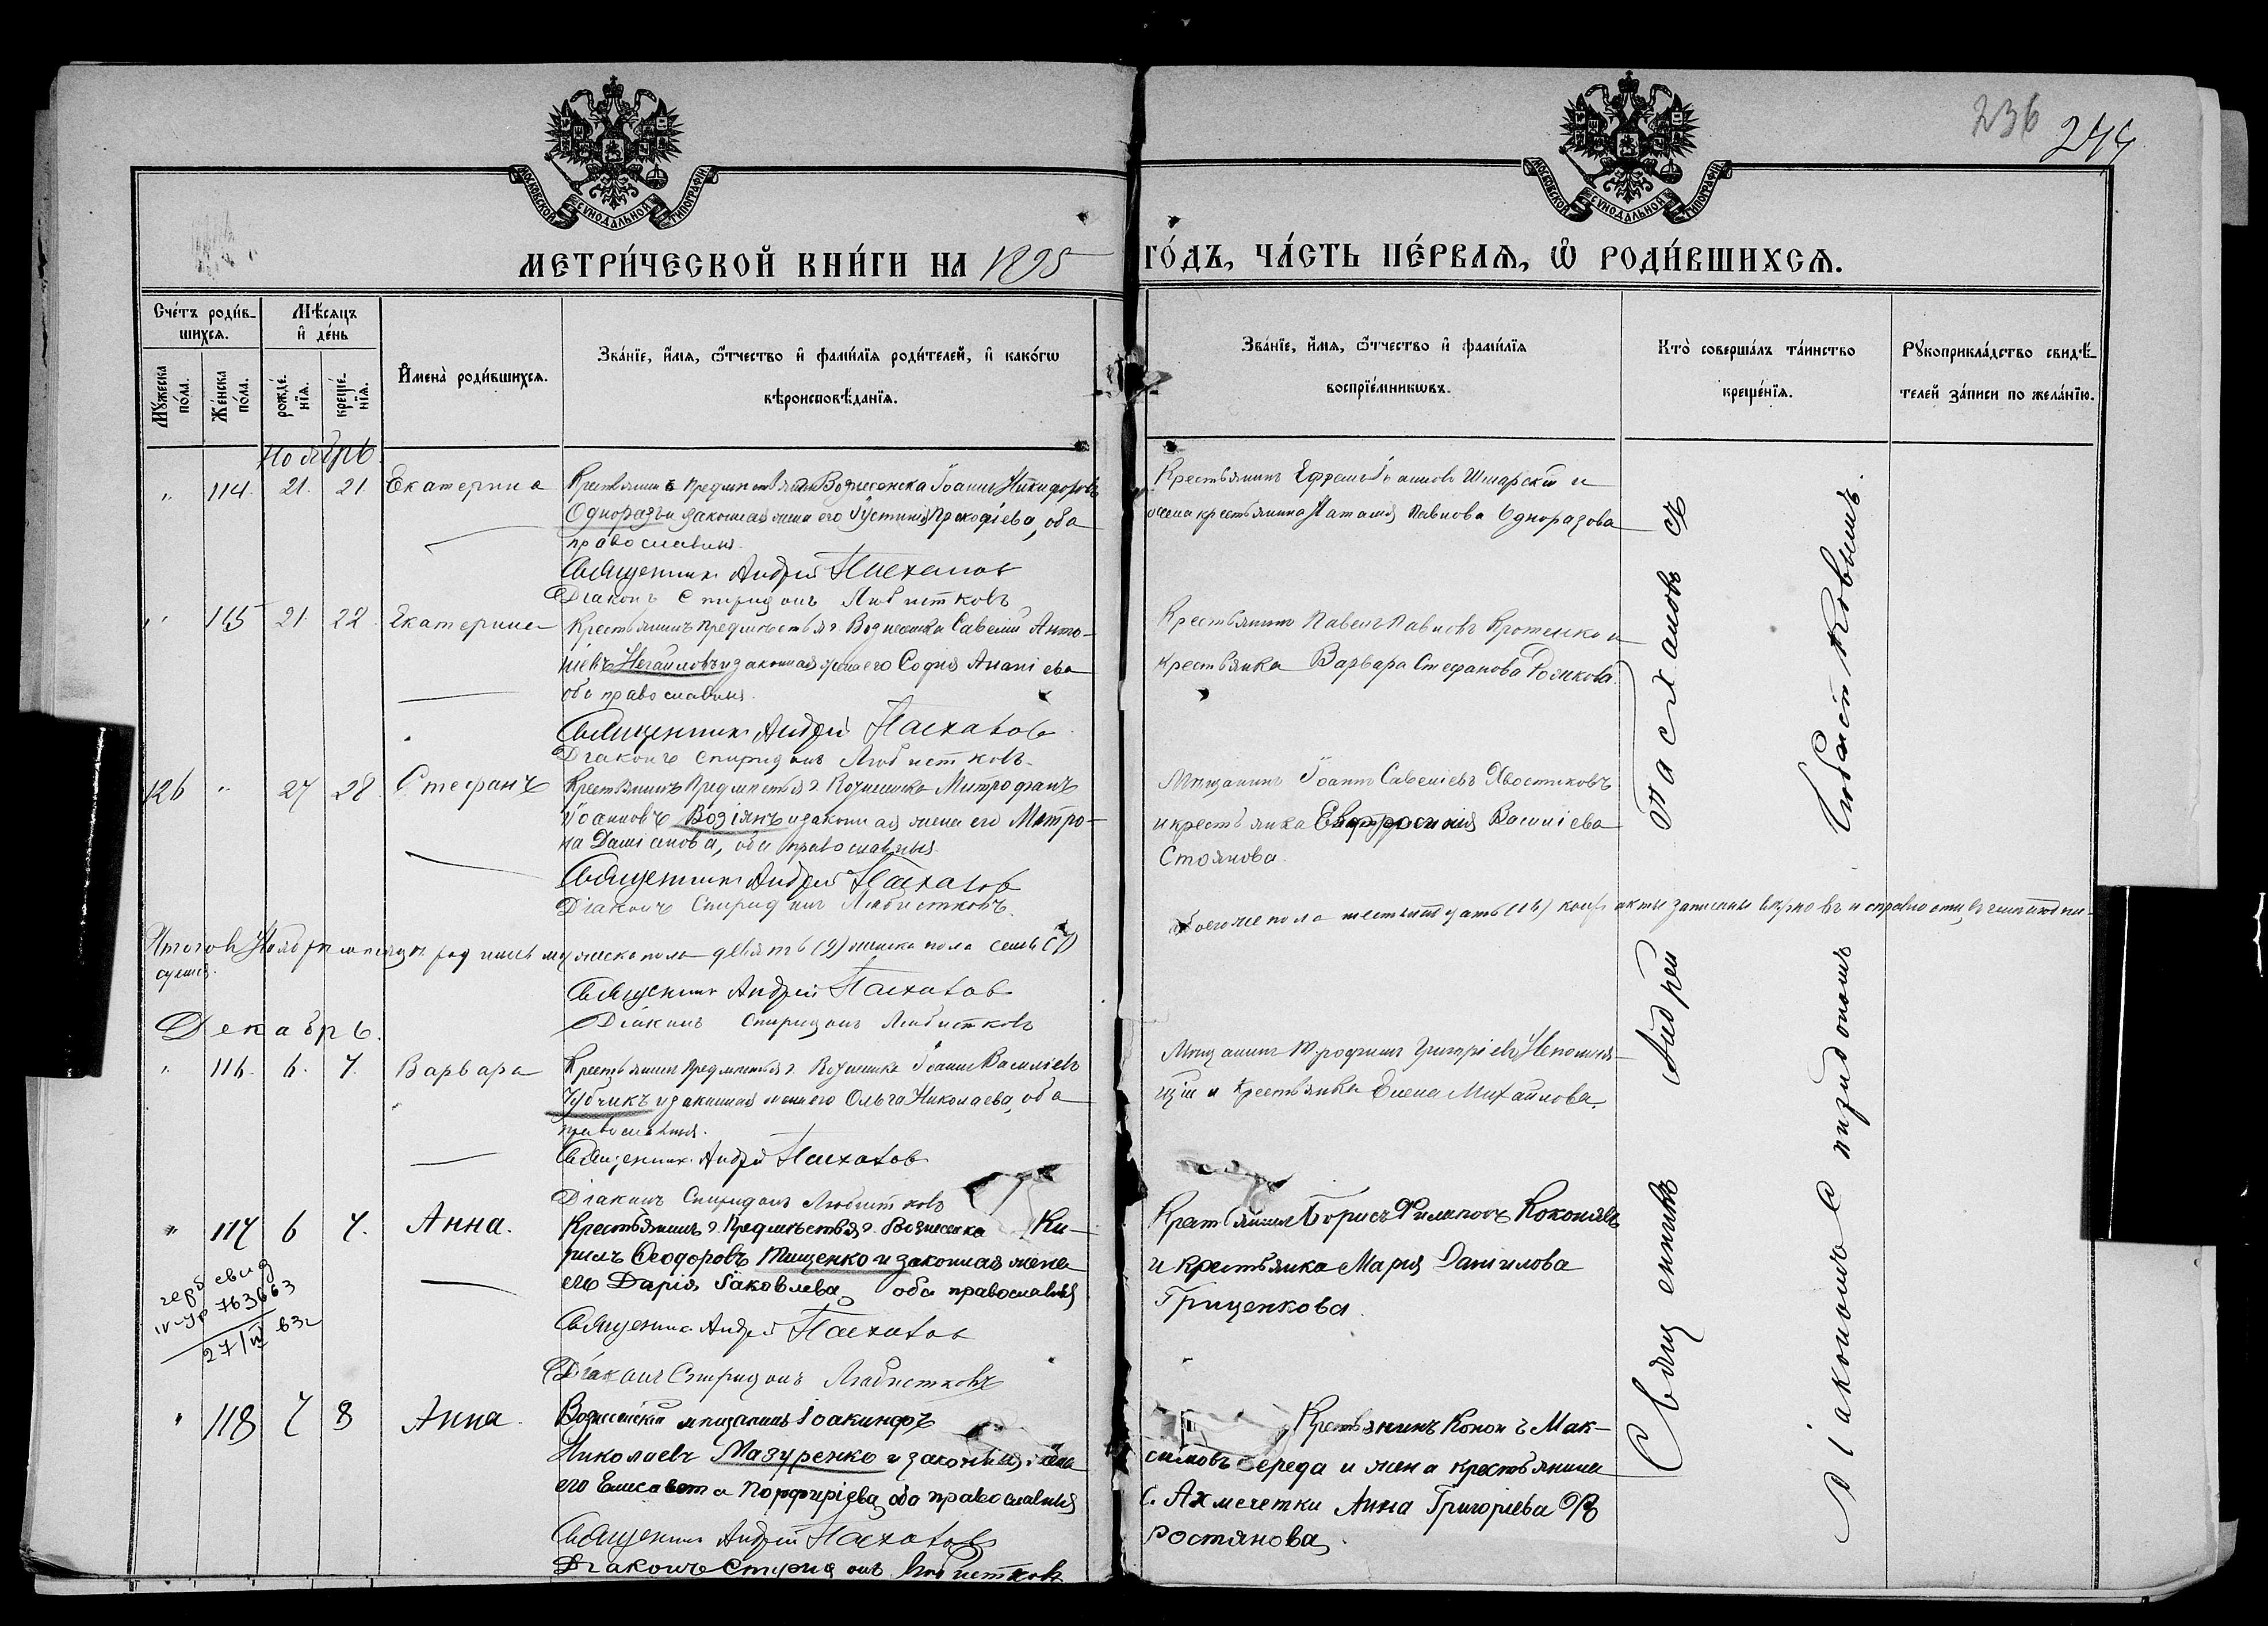 236
244
МОСКОВСКОЙ СѴНОДАЛЬНОЙ ТИПОГРАФІИ
МОСКОВСКОЙ СѴНОДАЛЬНОЙ ТИПОГРАФІИ
МЕТРИ́ЧЕСКОЙ КНИ́ГИ НА 1895 ГО́ДЪ, ЧА́СТЬ ПЕ́РВАѦ, Ѡ РОДИ́ВШИХСѦ.
Сче́тъ роди́в-
шихся.
Мꙋ́жеска по́ла.
Же́нска по́ла.
Мѣ́сяцъ и де́нь
рожде́-нїя.
креще́-нїя.
Имена̀ роди́вшихся.
Зва́нїе, и́мя, ѻ́тчество и фами́лїя роди́телей, и како́гѡ
вѣроисповѣ́данїя.
Зва́нїе, и́мя, ѻ́тчество и фами́лїя
воспрїе́мникѡвъ.
Кто̀ соверша́лъ та́инство
креще́нїя.
Рꙋкоприкла́дство свидѣ́-
телей за́писи по жела́нїю.
Ноябрь
" 114. 21. 21 Екатерина Крестьянинъ предмѣстья г. Вознесенска Іоаннъ Никифоровъ
Одноразъ и законная жена его Іустинія Прокофіева, оба
православныя.
Священникъ Андрей Пасхаловъ
Діаконъ Спиридонъ Любистковъ
Крестьянинъ Ефремъ Іоанновъ Шиарскій и
жена крестьянина Наталія Павлова Одноразова
" 115 21. 22. Екатерина Крестьянинъ предмѣстья г. Вознесенска Савелій Анто-
ніевъ Негайловъ и законная жена его Софія Ананіева
оба православныя.
Священникъ Андрей Пасхаловъ
Діаконъ Спиридонъ Любистковъ
Крестьянинъ Павелъ Павловъ Кротенко и
крестьянка Варвара Стефанова
126 " 27 28 Стефанъ Крестьянинъ предмѣстья г. Вознесенска Митрофанъ
Іоанновъ Возіянъ и законная жена его Матро-
на Даміанова, оба православныя.
Священникъ Андрей Пасхаловъ
Діаконъ Спиридонъ Любистковъ.
Мѣщанинъ Іоаннъ Савеліевъ Хвостиковъ
и крестьянка Евфросинія Василіева
Стоянова.
Итого въ Ноябрѣ мѣсяцѣ родилось мужска пола девять (9) женска пола семь (7)
обоего же пола шестнадцать (16)
Священникъ Андрей Пасхаловъ
Діаконъ Спиридонъ Любистковъ
Декабрь.
" 116. 6. 7. Варвара Крестьянинъ предмѣстья г. Вознесенска Іоаннъ Василіевъ
Чубчикъ и законная жена его Ольга Николаева, оба
православныя.
Священникъ Андрей Пасхаловъ
Діаконъ Спиридонъ Любистковъ
Мѣщанинъ Трофимъ Димитріевъ Непомня-
щій и крестьянка Елена Михайлова.
" 117 6 7. Анна. Крестьянинъ предмѣстья г. Вознесенска Ки-
рилъ Ѳеодоровъ Тищенко и законная жена
его Дарія Іаковлева, оба православныя
Священникъ Андрей Пасхаловъ
Діаконъ Спиридонъ Любистковъ
Крестьянинъ Борисъ Филиповъ
и крестьянка Марія Даніилова
Гриценкова.
герб свид
IV-УР 763663
27/IV 63г
" 118 7 8 Анна. Вознесенскій мѣщанинъ Іоакинфъ
Николаевъ Мазуренко и законная жена
его Елисавета Порфиріева оба православныя
Священникъ Андрей Пасхаловъ
Діаконъ Спиридонъ Любистковъ
Крестьянинъ Кононъ Мак-
симовъ Середа и жена крестьянина
с. Ахмечетки Анна Григоріева
ростянова.
Священникъ Андрей Пасхаловъ съ
Діакономъ Спиридономъ Любистковымъ.